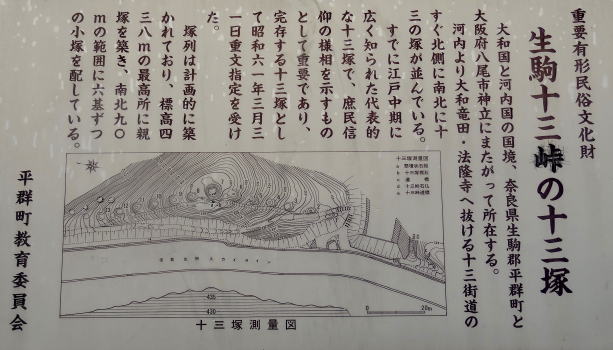 重要有形民俗文化財
生駒十三峠の十三塚
大和国と河内国の国境、奈良県生駒郡平群町と
大阪府八尾市神立にまたがって所在する。
河内より大和竜田・法隆寺へ抜ける十三街道の
すぐ北側に南北に十
三の塚が並んでいる。
すでに江戸中期に
広く知られた代表的
な十三塚で、庶民信
仰の様相を示すもの
として重要であり、
完存する十三塚とし
て昭和六一年三月三
一日重文指定を受け
た。
塚列は計画的に築
かれており、標高四
三八mの最高所に親
塚を築き、南北九〇
mの範囲に六基ずつ
の小塚を配している。
十三塚測量図
435
430
0 20m
十三塚測量図
平群町教育委員会